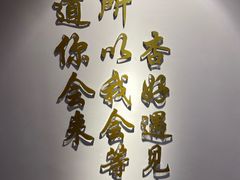 道你会来
所以我会等
杏好遇见